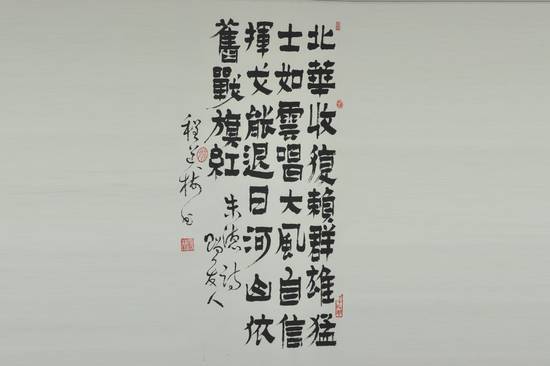 北華收復賴群雄猛
士如雲唱大風自信
揮戈能退日河山依
舊戰旗紅
朱德詩
贈友人
程